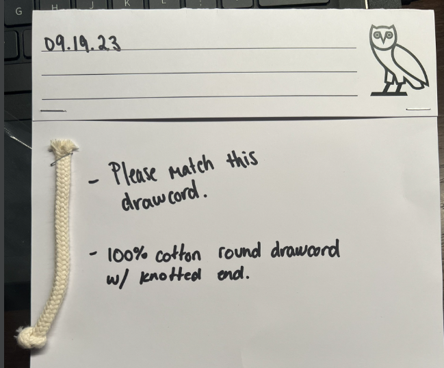 G H J K L
09.19.23
- Please match this
drawcord.
- 100% cotton round drawcord
w/ knotted end.